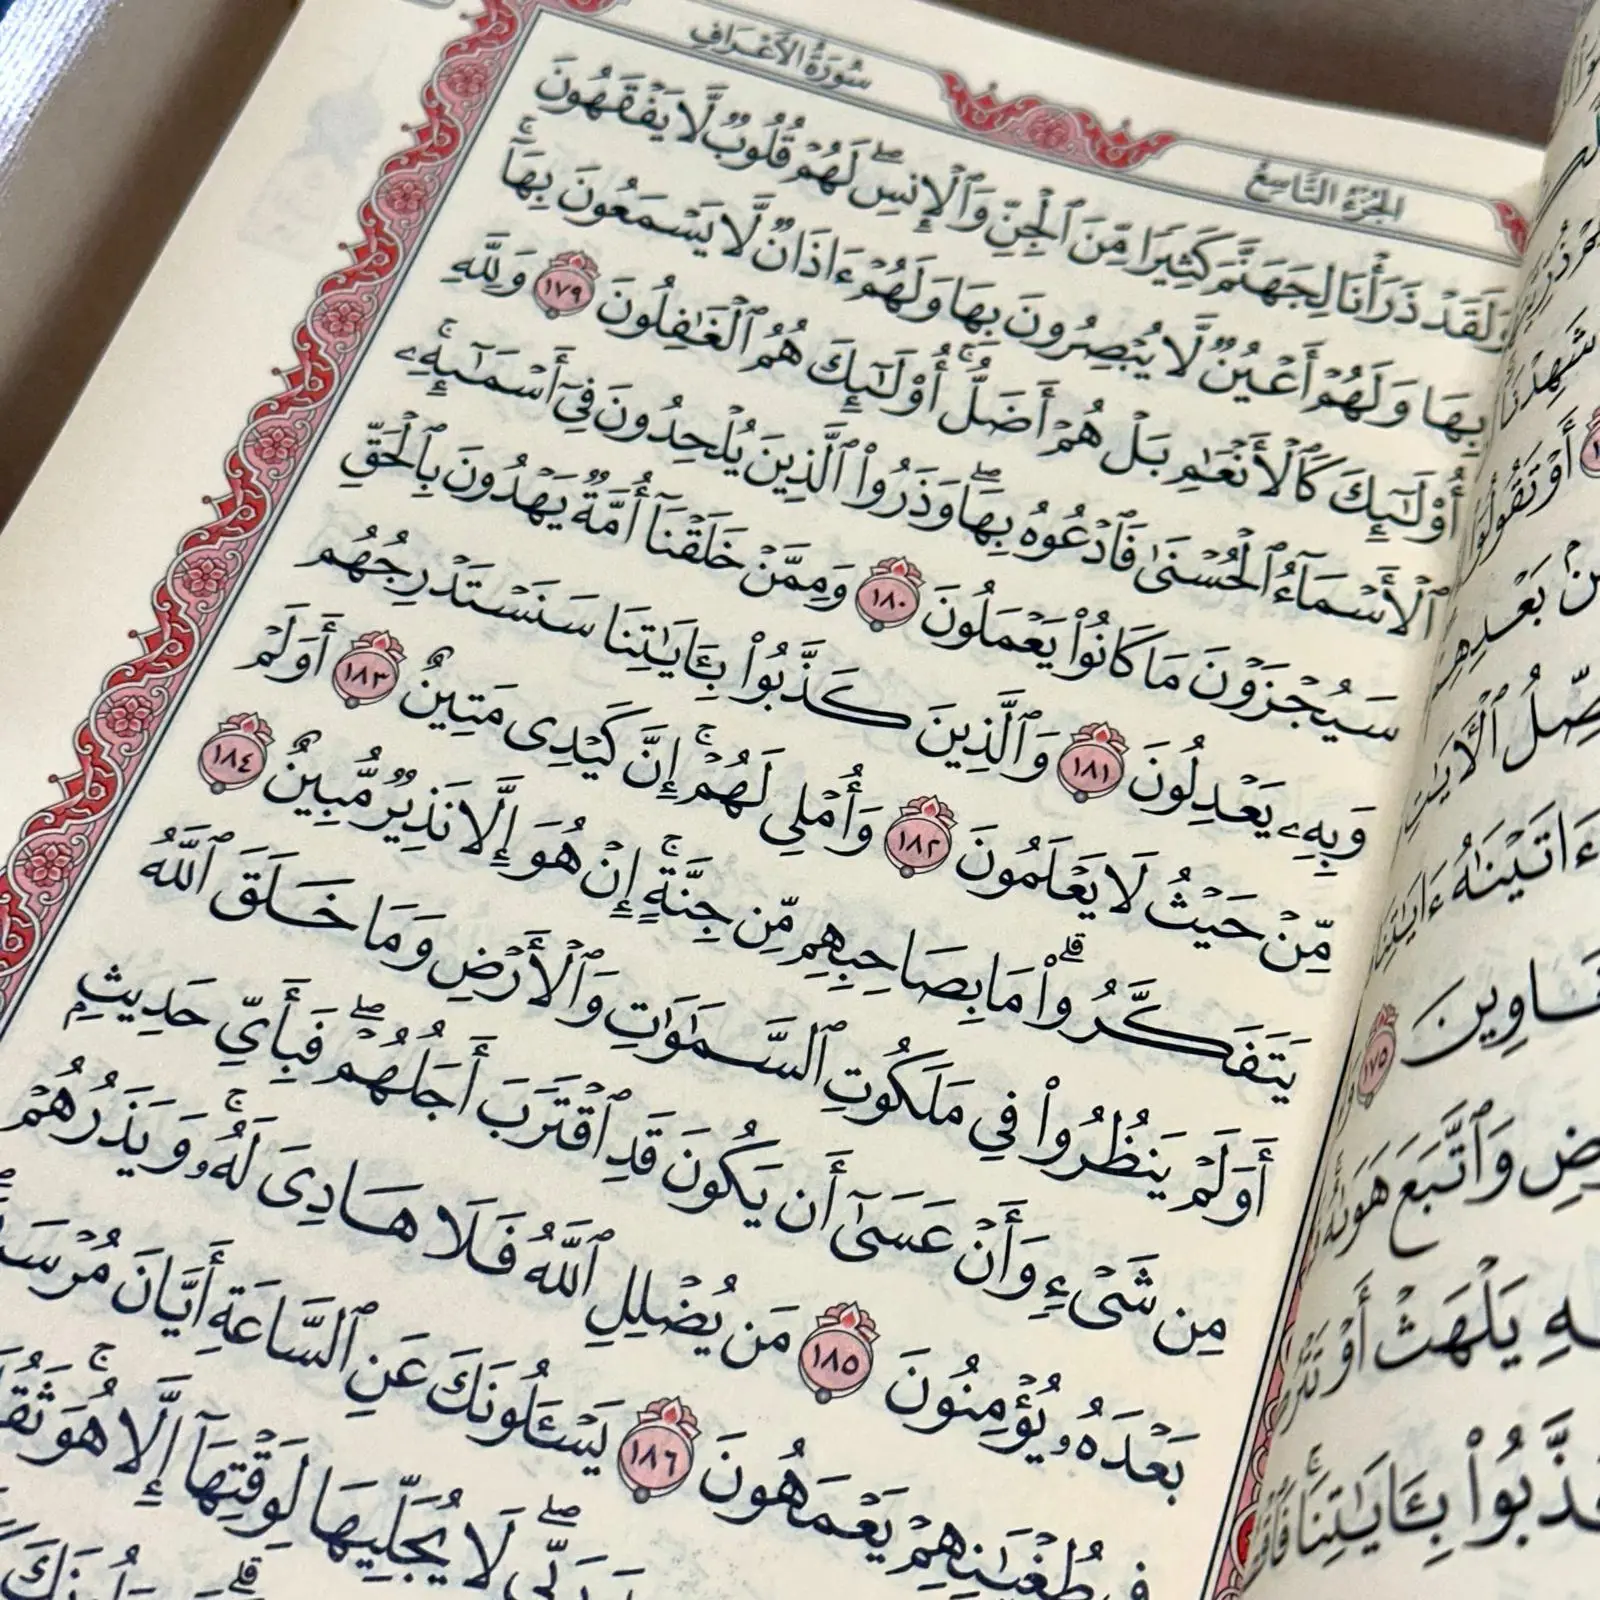 سُورَةُ الأَعْرَافِ
الجُزْءُ التَّاسِعُ
وَلَقَدْ ذَرَأْنَا لِجَهَنَّمَ كَثِيرًا مِّنَ ٱلْجِنِّ وَٱلْإِنسِ ۖ لَهُمْ قُلُوبٌ لَّا يَفْقَهُونَ
بِهَا وَلَهُمْ أَعْيُنٌ لَّا يُبْصِرُونَ بِهَا وَلَهُمْ ءَاذَانٌ لَّا يَسْمَعُونَ بِهَآ ۚ
أُو۟لَـٰٓئِكَ كَٱلْأَنْعَـٰمِ بَلْ هُمْ أَضَلُّ ۚ أُو۟لَـٰٓئِكَ هُمُ ٱلْغَـٰفِلُونَ ١٧٩ وَلِلَّهِ
ٱلْأَسْمَآءُ ٱلْحُسْنَىٰ فَٱدْعُوهُ بِهَا ۖ وَذَرُوا۟ ٱلَّذِينَ يُلْحِدُونَ فِىٓ أَسْمَـٰٓئِهِۦ ۚ
سَيُجْزَوْنَ مَا كَانُوا۟ يَعْمَلُونَ ١٨٠ وَمِمَّنْ خَلَقْنَآ أُمَّةٌ يَهْدُونَ بِٱلْحَقِّ
وَبِهِۦ يَعْدِلُونَ ١٨١ وَٱلَّذِينَ كَذَّبُوا۟ بِـَٔايَـٰتِنَا سَنَسْتَدْرِجُهُم
مِّنْ حَيْثُ لَا يَعْلَمُونَ ١٨٢ وَأُمْلِى لَهُمْ ۚ إِنَّ كَيْدِى مَتِينٌ ١٨٣ أَوَلَمْ
يَتَفَكَّرُوا۟ ۗ مَا بِصَاحِبِهِم مِّن جِنَّةٍ ۚ إِنْ هُوَ إِلَّا نَذِيرٌ مُّبِينٌ ١٨٤
أَوَلَمْ يَنظُرُوا۟ فِى مَلَكُوتِ ٱلسَّمَـٰوَٰتِ وَٱلْأَرْضِ وَمَا خَلَقَ ٱللَّهُ
مِن شَىْءٍ وَأَنْ عَسَىٰٓ أَن يَكُونَ قَدِ ٱقْتَرَبَ أَجَلُهُمْ ۖ فَبِأَىِّ حَدِيثٍۭ
بَعْدَهُۥ يُؤْمِنُونَ ١٨٥ مَن يُضْلِلِ ٱللَّهُ فَلَا هَادِىَ لَهُۥ ۚ وَيَذَرُهُمْ
فِى طُغْيَـٰنِهِمْ يَعْمَهُونَ ١٨٦ يَسْـَٔلُونَكَ عَنِ ٱلسَّاعَةِ أَيَّانَ
لَا يُجَلِّيهَا لِوَقْتِهَآ إِلَّا هُوَ
شَهِدْنَآ
أَوْ تَقُولُوٓا۟
بَعْدِهِمْ
ٱلْـَٔايَـٰتِ
ءَاتَيْنَـٰهُ ءَايَـٰتِنَا
١٧٥
وَٱتَّبَعَ هَوَىٰهُ
يَلْهَثْ أَوْ
بِـَٔايَـٰتِنَا